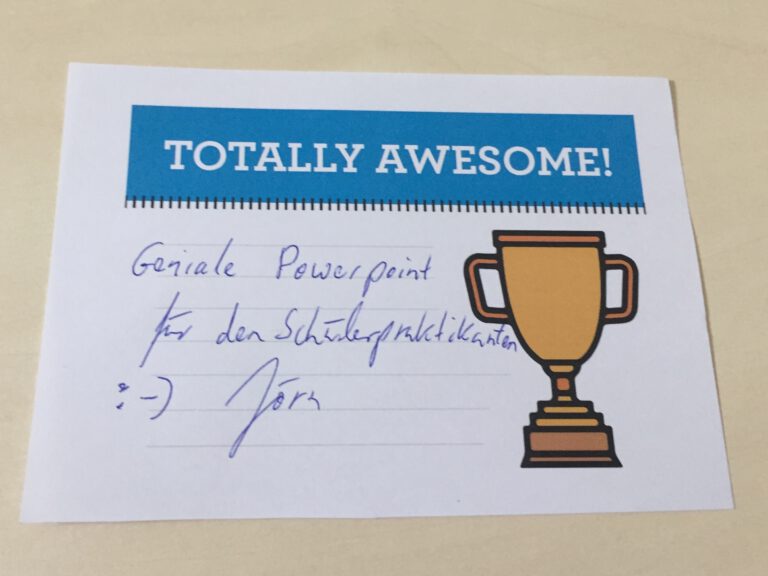 TOTALLY AWESOME!
Geniale Powerpoint
für den Schülerpraktikanten
:-) Jörn